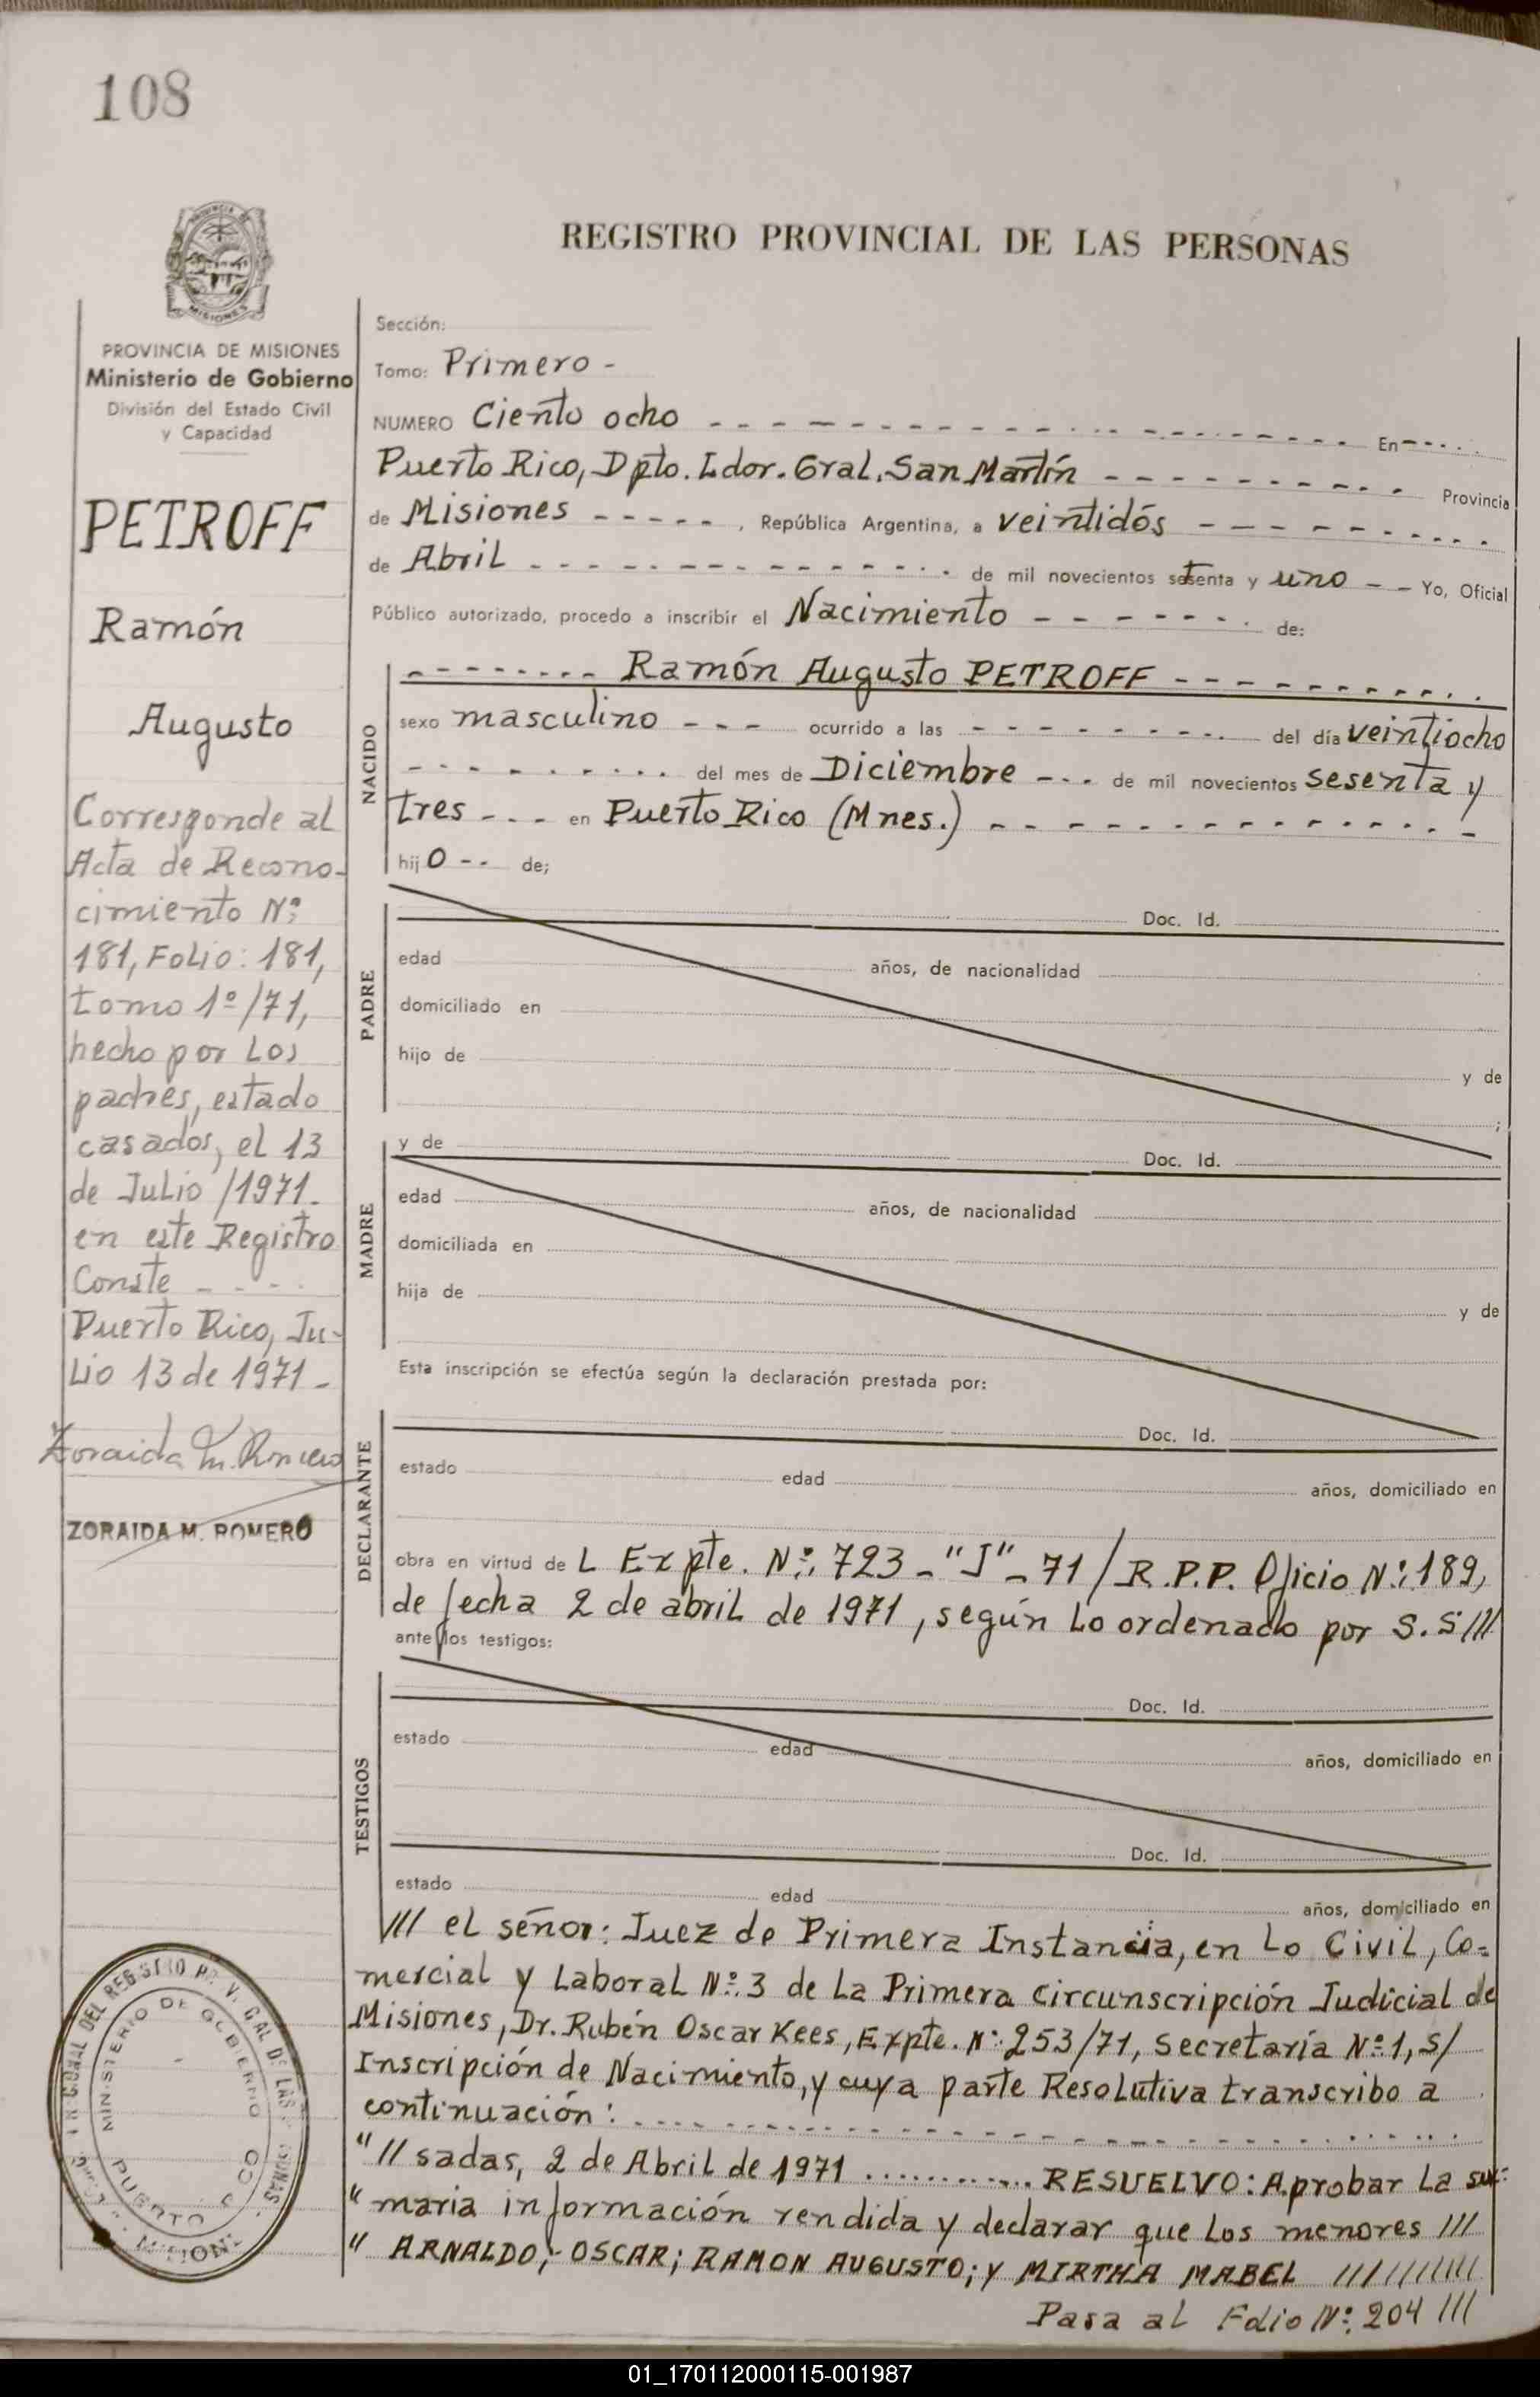 108
REGISTRO PROVINCIAL DE LAS PERSONAS
PROVINCIA DE MISIONES
Ministerio de Gobierno
División del Estado Civil
y Capacidad
PETROFF
Ramón
Augusto
Corresponde al
Acta de Recono-
cimiento Nº:
181, Folio: 181,
tomo 1º/71,
hecho por los
padres, estado
casados, el 13
de Julio /1971-
en este Registro
Conste - - - -
Puerto Rico, Ju-
lio 13 de 1971 -
Zoraida M. Romero
ZORAIDA M. ROMERO
Sección:
Tomo: Primero -
NUMERO Ciento ocho - - - - - - - - - - - - - - - - En - - - -
Puerto Rico, Dpto. Ldor. Gral. San Martín - - - - - - - - - Provincia
de Misiones - - - - - , República Argentina, a veintidós - - - - - - - - - -
de Abril - - - - - - - - - - - - - - de mil novecientos setenta y uno - - Yo, Oficial
Público autorizado, procedo a inscribir el Nacimiento - - - - - - - - de:
NACIDO
- - - - - - - - Ramón Augusto PETROFF - - - - - - - - - - -
sexo masculino - - - ocurrido a las - - - - - - - - - del día veintiocho
- - - - - - - - - del mes de Diciembre - - - de mil novecientos sesenta y
tres - - - en Puerto Rico (Mnes.) - - - - - - - - - - - - - - -
hijo - - de;
PADRE
Doc. Id.
edad años, de nacionalidad
domiciliado en
hijo de y de
;
MADRE
y de Doc. Id.
edad años, de nacionalidad
domiciliada en
hija de y de
Esta inscripción se efectúa según la declaración prestada por:
DECLARANTE
Doc. Id.
estado edad años, domiciliado en
obra en virtud de L Expte. Nº: 723 - "J" - 71 / R.P.P. Oficio Nº: 189,
de fecha 2 de abril de 1971, según lo ordenado por S.S ///
ante los testigos:
TESTIGOS
Doc. Id.
estado edad años, domiciliado en
Doc. Id.
estado edad años, domiciliado en
/// el señor: Juez de Primera Instancia, en lo Civil, Co=
mercial y Laboral Nº: 3 de la Primera Circunscripción Judicial de
Misiones, Dr. Rubén Oscar Kees, Expte. Nº: 253/71, Secretaría Nº: 1, S/
Inscripción de Nacimiento, y cuya parte Resolutiva transcribo a
continuación: - - - - - - - - - - - - - - - - - - - -
"// sadas, 2 de Abril de 1971 ............ RESUELVO: Aprobar la su=
" maria información rendida y declarar que los menores ///
" ARNALDO; OSCAR; RAMON AUGUSTO; y MIRTHA MABEL //////////
Pasa al Folio Nº: 204 ///
MINISTERIO DE GOBIERNO
PUERTO RICO
01_170112000115-001987